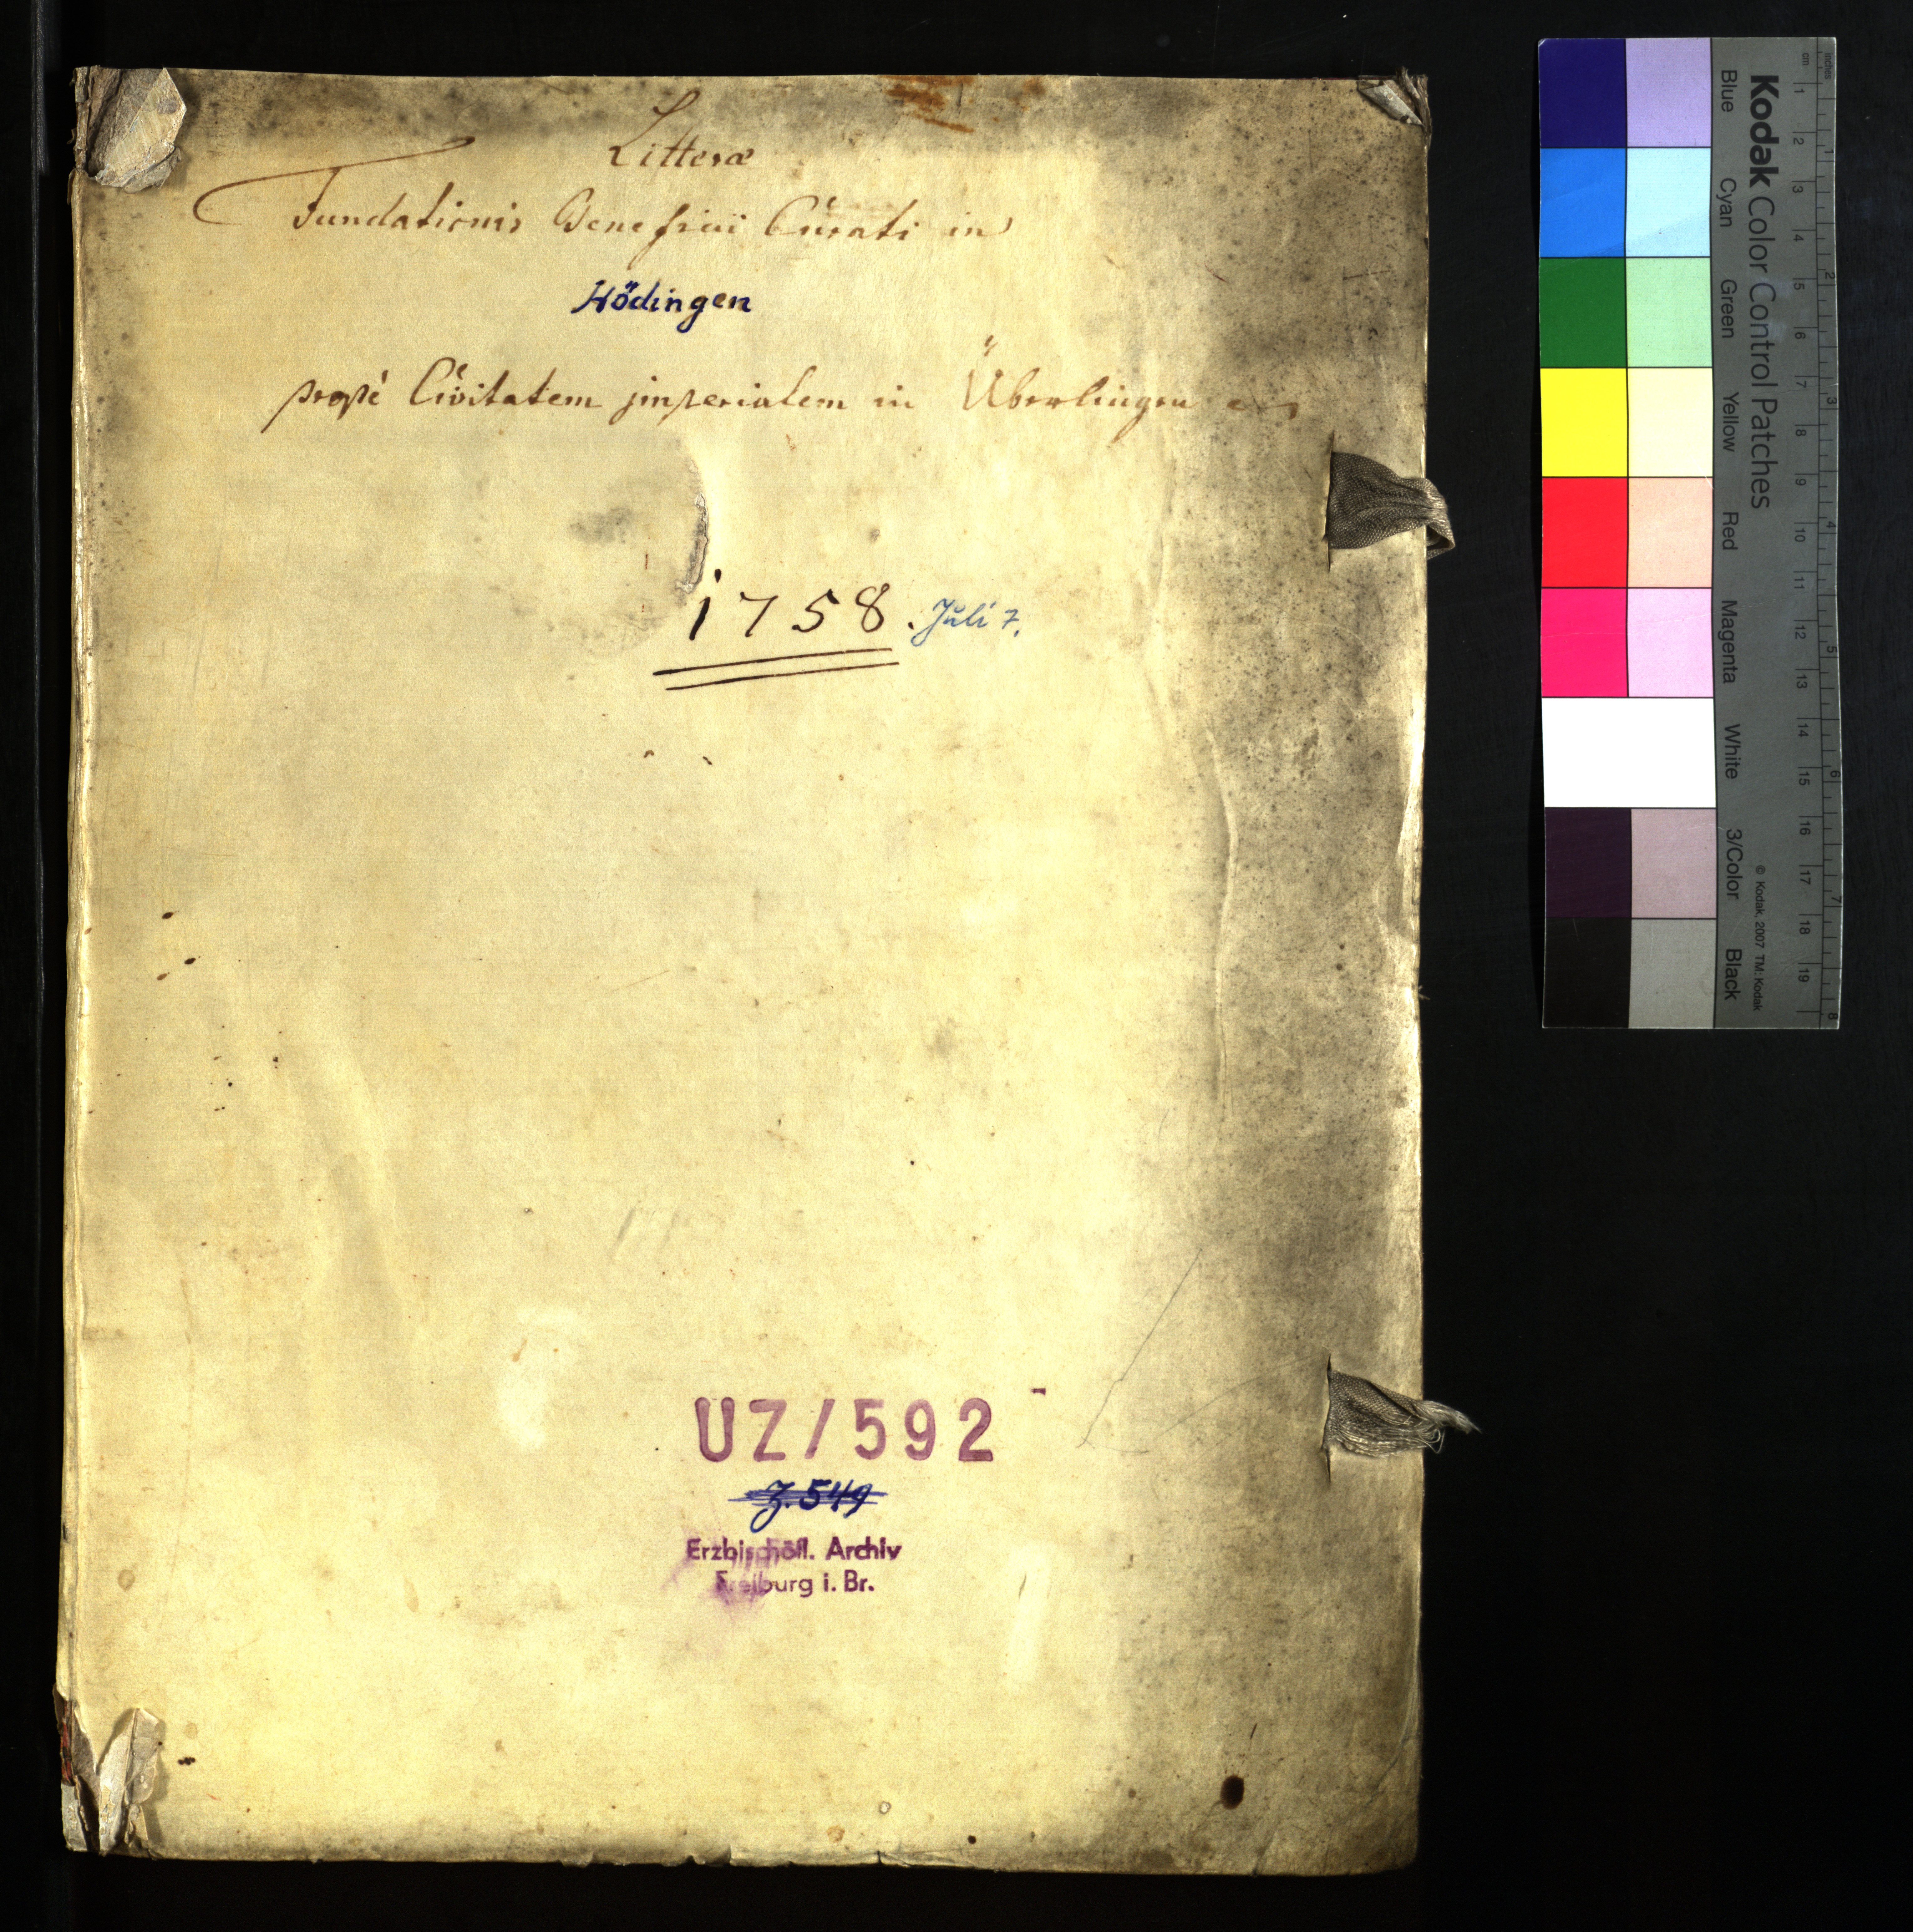 Litteræ
Fundationis Beneficii Curati in
Hödingen
propè Civitatem jmperialem in Überlingen
1758. Juli 7.
UZ/592
Z. 549
Erzbischöfl. Archiv
Freiburg i. Br.
Kodak Color Control Patches
Blue Cyan Green Yellow Red Magenta White 3/Color Black
© Kodak, 2007 TM: Kodak
cm 1 2 3 4 5 6 7 8 9 10 11 12 13 14 15 16 17 18 19
inches 1 2 3 4 5 6 7 8